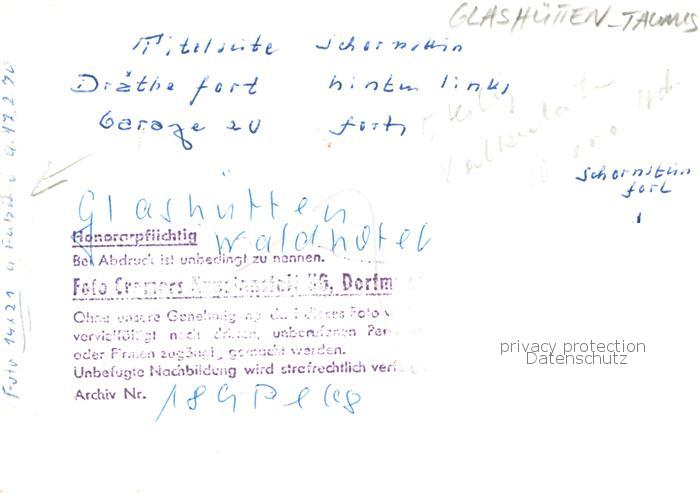 GLASHÜTTEN-TAUNUS
Titelseite schornstein
Dräthe fort hinten links
Garage zu fort
schornstein
fort
Glashütten
Waldhotel
Honorarpflichtig
Bei Abdruck ist unbedingt zu nennen.
Foto Cramers Kunstanstalt KG, Dortm
Ohne unsere Genehmigung darf dieses Foto
vervielfältigt noch dritten, unberufenen Per
oder Firmen zugängig gemacht werden.
Unbefugte Nachbildung wird strafrechtlich verf
Archiv Nr.
Foto 14x21
privacy protection
Datenschutz